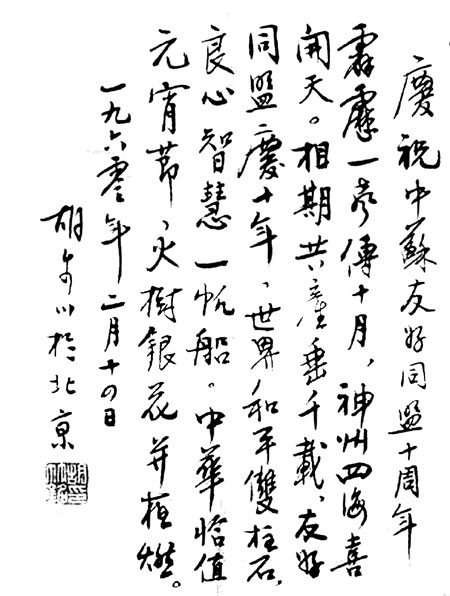 慶祝中蘇友好同盟十周年
霹靂一聲傳十月，神州四海喜
開天。相期共產垂千載，友好
同盟慶十年，世界和平雙柱石，
良心智慧一帆船。中華恰值
元宵節，火樹銀花并燃。
一九六零年二月十四日
胡步川於北京